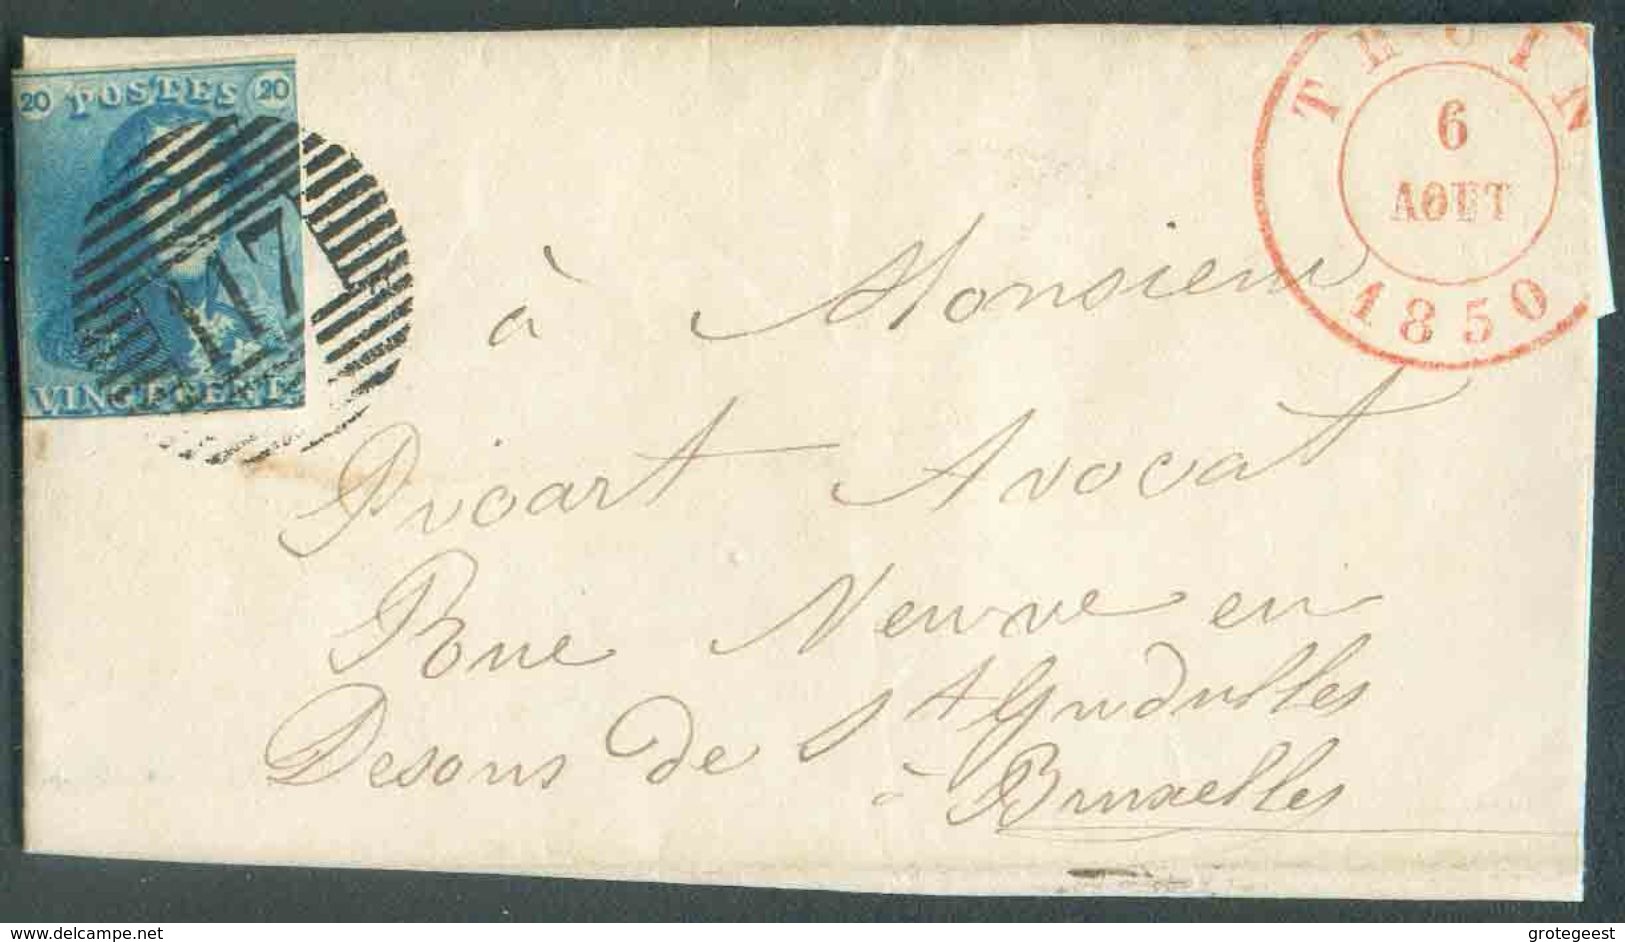 20 POSTES 20
117
VINGT CENTS
THUIN
6
AOUT
1850
à Monsieur
Dicart Avocat
Rue Neuve en
Desous de St Gudulles
à Bruxelles
www.delcampe.net
grotegeest